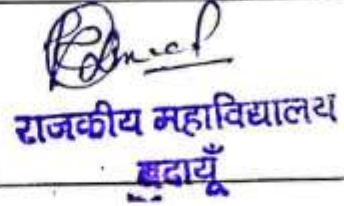 राजकीय महाविद्यालय
बदायूँ